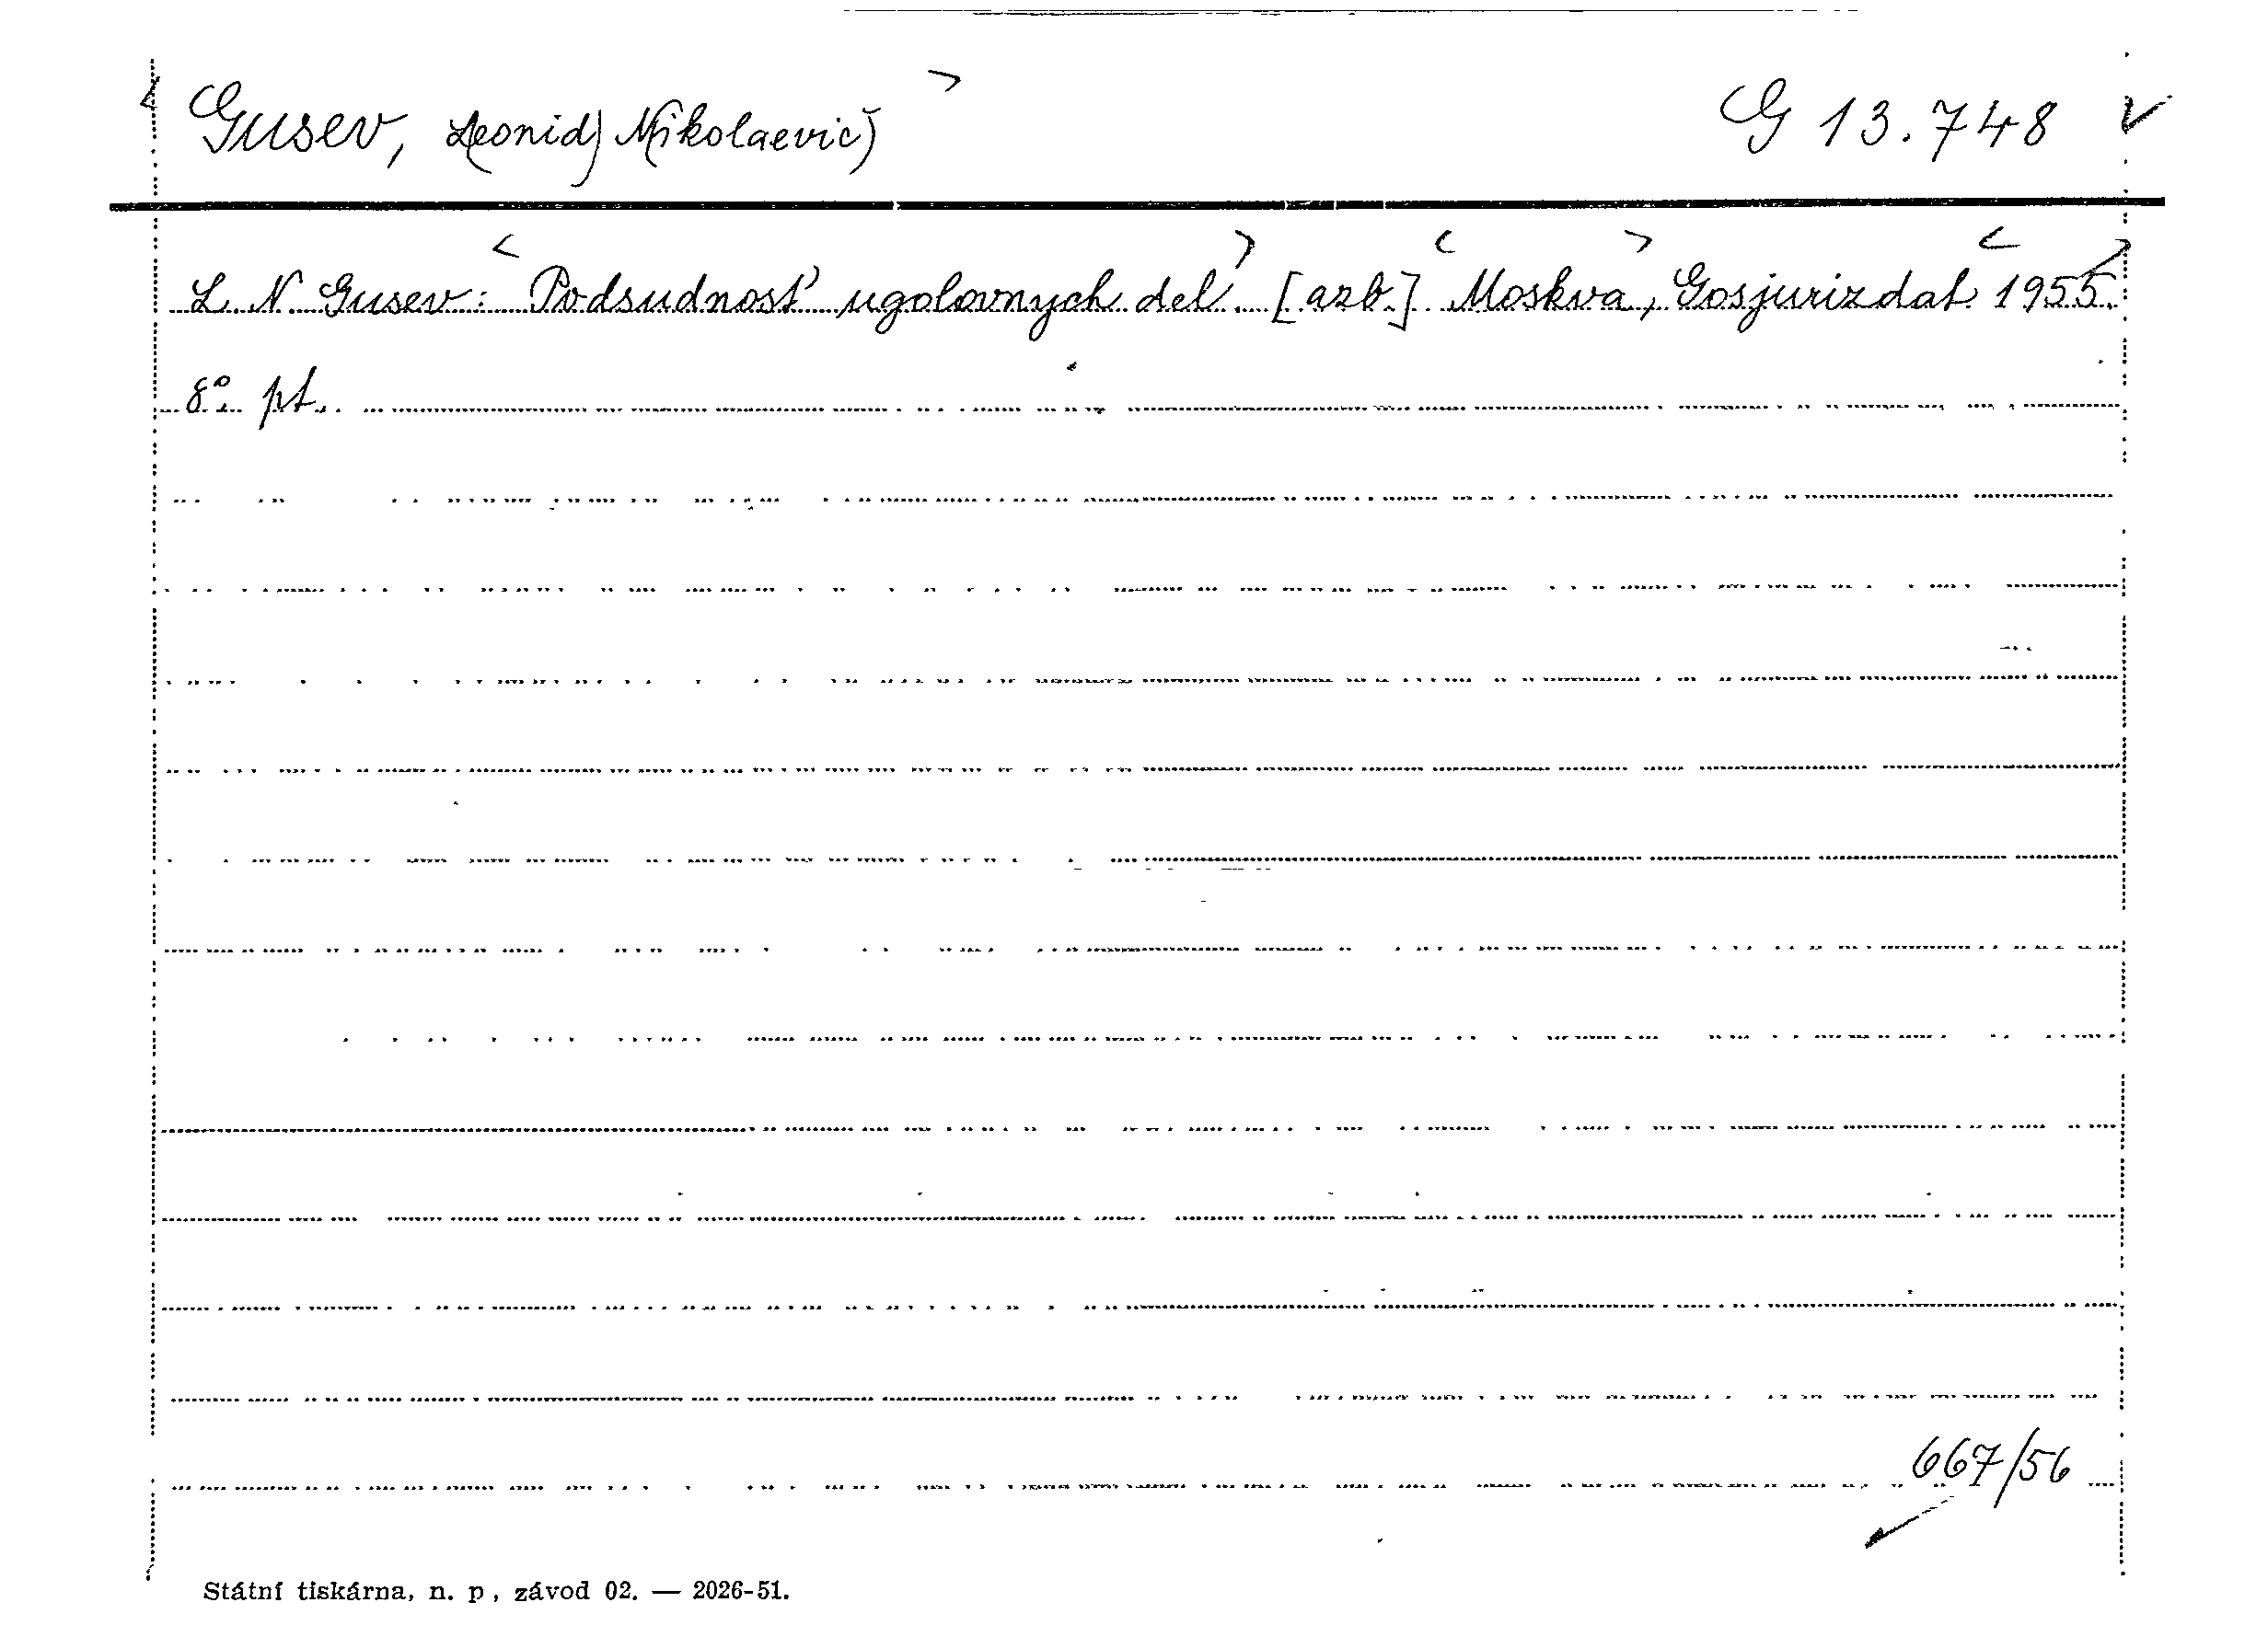 Gusev, L(eonid) N(ikolaevič) G 13.748
L. N. Gusev: Podsudnosť ugolovnych del. [azb.] Moskva, Gosjurizdat 1955.
8°. pt.
667/56
Státní tiskárna, n. p, závod 02. — 2026-51.